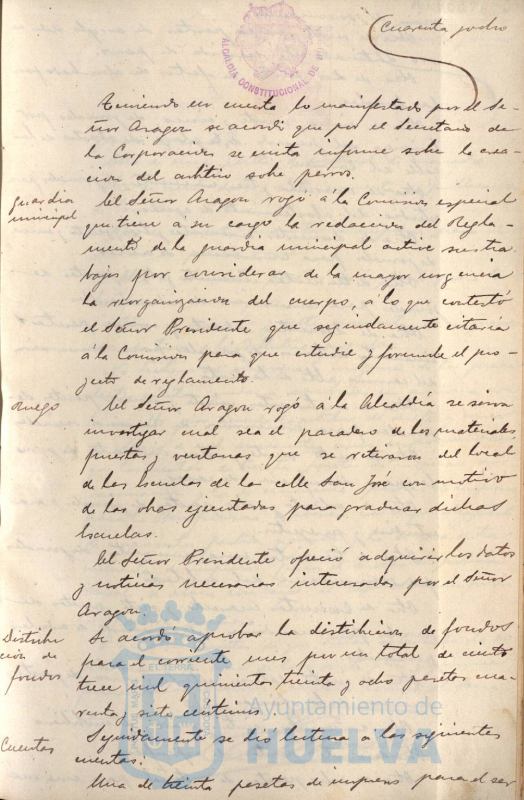 Cuarenta y ocho
ALCALDÍA CONSTITUCIONAL DE
Teniendo en cuenta lo manifestado por el Se-
ñor Aragon se acordó que por el Secretario de
la Corporacion se emita informe sobe la crea-
cion del arbitrio sobe perros.
guardia
municipal
El Señor Aragon rogó á la Comision especial
que tiene á su cargo la redaccion del Regla-
mentó de la guardia municipal active sus tra
bajos por considerar de la mayor urgencia
la reorganizacion del cuerpo, a lo que contestó
el Señor Presidente que seguidamente citaria
á la Comision para que estudie y formule el pro-
yecto de reglamento.
Ruego
El Señor Aragon rogó á la Alcaldía se sirva
investigar cual sea el paradero de los materiales,
puertas y ventanas que se retiraron del local
de las Escuelas de la calle San José con motivo
de las obras ejecutadas para graduar dichas
Escuelas.
El Señor Presidente ofreció adquirir los datos
y noticias necesarias interesadas por el Señor
Aragon.
Distribu
cion de
fondos
Se acordó aprobar la distribucion de fondos
para el corriente mes por un total de ciento
trece mil quinientas treinta y ocho pesetas cua-
renta y siete céntimos.
Cuentas
Seguidamente se dio lectura a las siguientes
cuentas:
Una de treinta pesetas de impresos para el ser
Ayuntamiento de
HUELVA